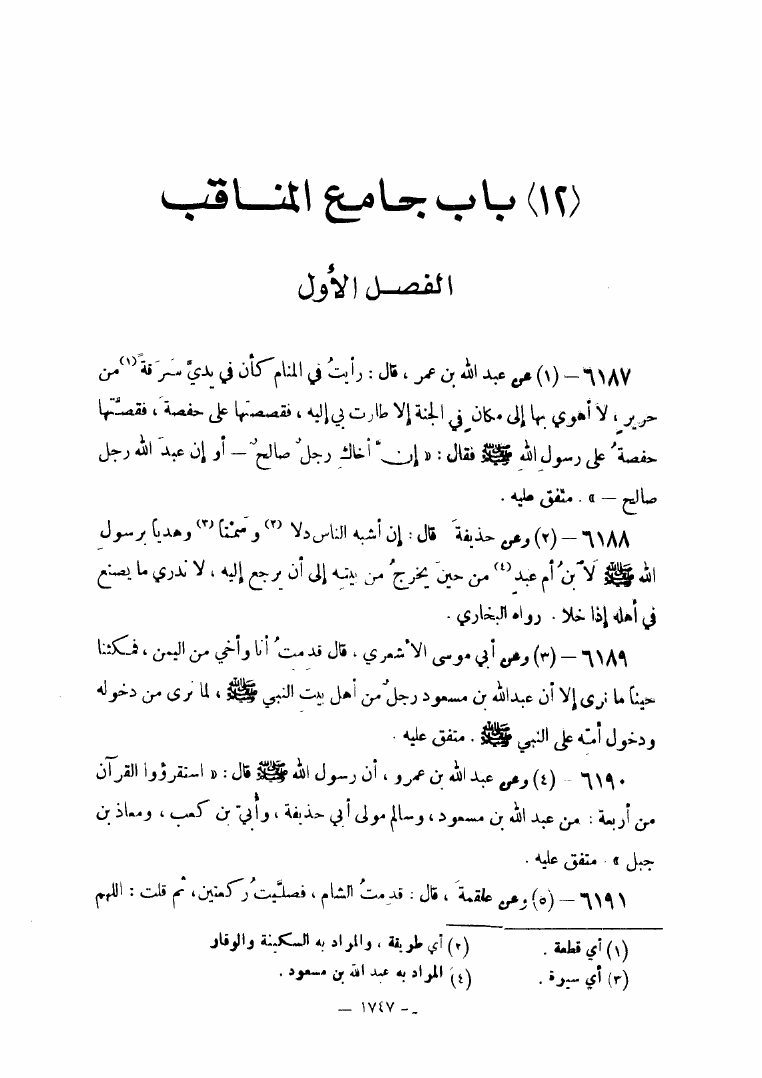 (١٢) باب جامع المناقب
الفصل الأول
٦١٨٧ – (١) عن عبد الله بن عمر ، قال : رأيتُ في المنام كأن في يديَّ سَرَقةً(١) من
حريرٍ ، لا أهوي بها إلى مكانٍ في الجنة إلا طارت بي إليه ، فقصصتها على حفصة ، فقصَّتها
حفصةُ على رسولِ اللهِ ﷺ فقال : « إنَّ أخاكِ رجلٌ صالحٌ – أو إن عبدَ الله رجل
صالح – » . متفق عليه .
٦١٨٨ – (٢) وعن حذيفةَ قال : إن أشبه الناس دلا (٢) وسَمْتاً (٣) وهدياً برسولِ
الله ﷺ لَابنُ أم عبدٍ (٤) من حينَ يخرجُ من بيته إلى أن يرجع إليه ، لا ندري ما يصنع
في أهله إذا خلا . رواه البخاري .
٦١٨٩ – (٣) وعن أبي موسى الأشعري ، قال قدِمتُ أنا وأخي من اليمن ، فمكثنا
حيناً ما نرى إلا أن عبدالله بن مسعود رجلٌ من أهل بيتِ النبي ﷺ ، لما نرى من دخوله
ودخول أمّه على النبي ﷺ . متفق عليه .
٦١٩٠ - (٤) وعن عبد الله بن عمرو ، أن رسول الله ﷺ قال : « استقرؤوا القرآن
من أربعة : من عبد الله بن مسعود ، وسالم مولى أبي حذيفة ، وأُبيّ بن كعب ، ومعاذ بن
جبل » . متفق عليه .
٦١٩١ – (٥) وعن علقمةَ ، قال : قدِمتُ الشام ، فصلَّيتُ ركعتين ، ثم قلت : اللهم
(١) أي قطعة . (٢) أي طريقة ، والمراد به السكينة والوقار
(٣) أي سيرة . (٤) المراد به عبد الله بن مسعود .
– ١٧٤٧ –